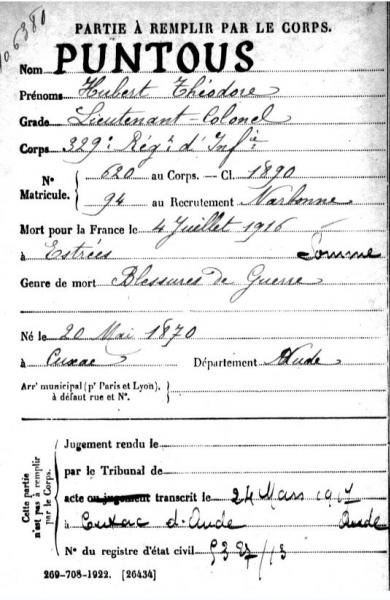 PARTIE À REMPLIR PAR LE CORPS.
Nom PUNTOUS
Prénoms Hubert Théodore
Grade Lieutenant-Colonel
Corps 329e Régt d'Infie
N° Matricule. 620 au Corps. — Cl. 1890
94 au Recrutement Narbonne
Mort pour la France le 4 Juillet 1916
à Estrées Somme
Genre de mort Blessures de Guerre
Né le 20 Mai 1870
à Cuxac Département Aude
Arrt municipal (pr Paris et Lyon),
à défaut rue et N°.
Cette partie n'est pas à remplir par le Corps.
Jugement rendu le
par le Tribunal de
acte ou jugement transcrit le 24 Mars 1917
à Cuxac d'Aude Aude
N° du registre d'état civil
269-708-1922. [26434]